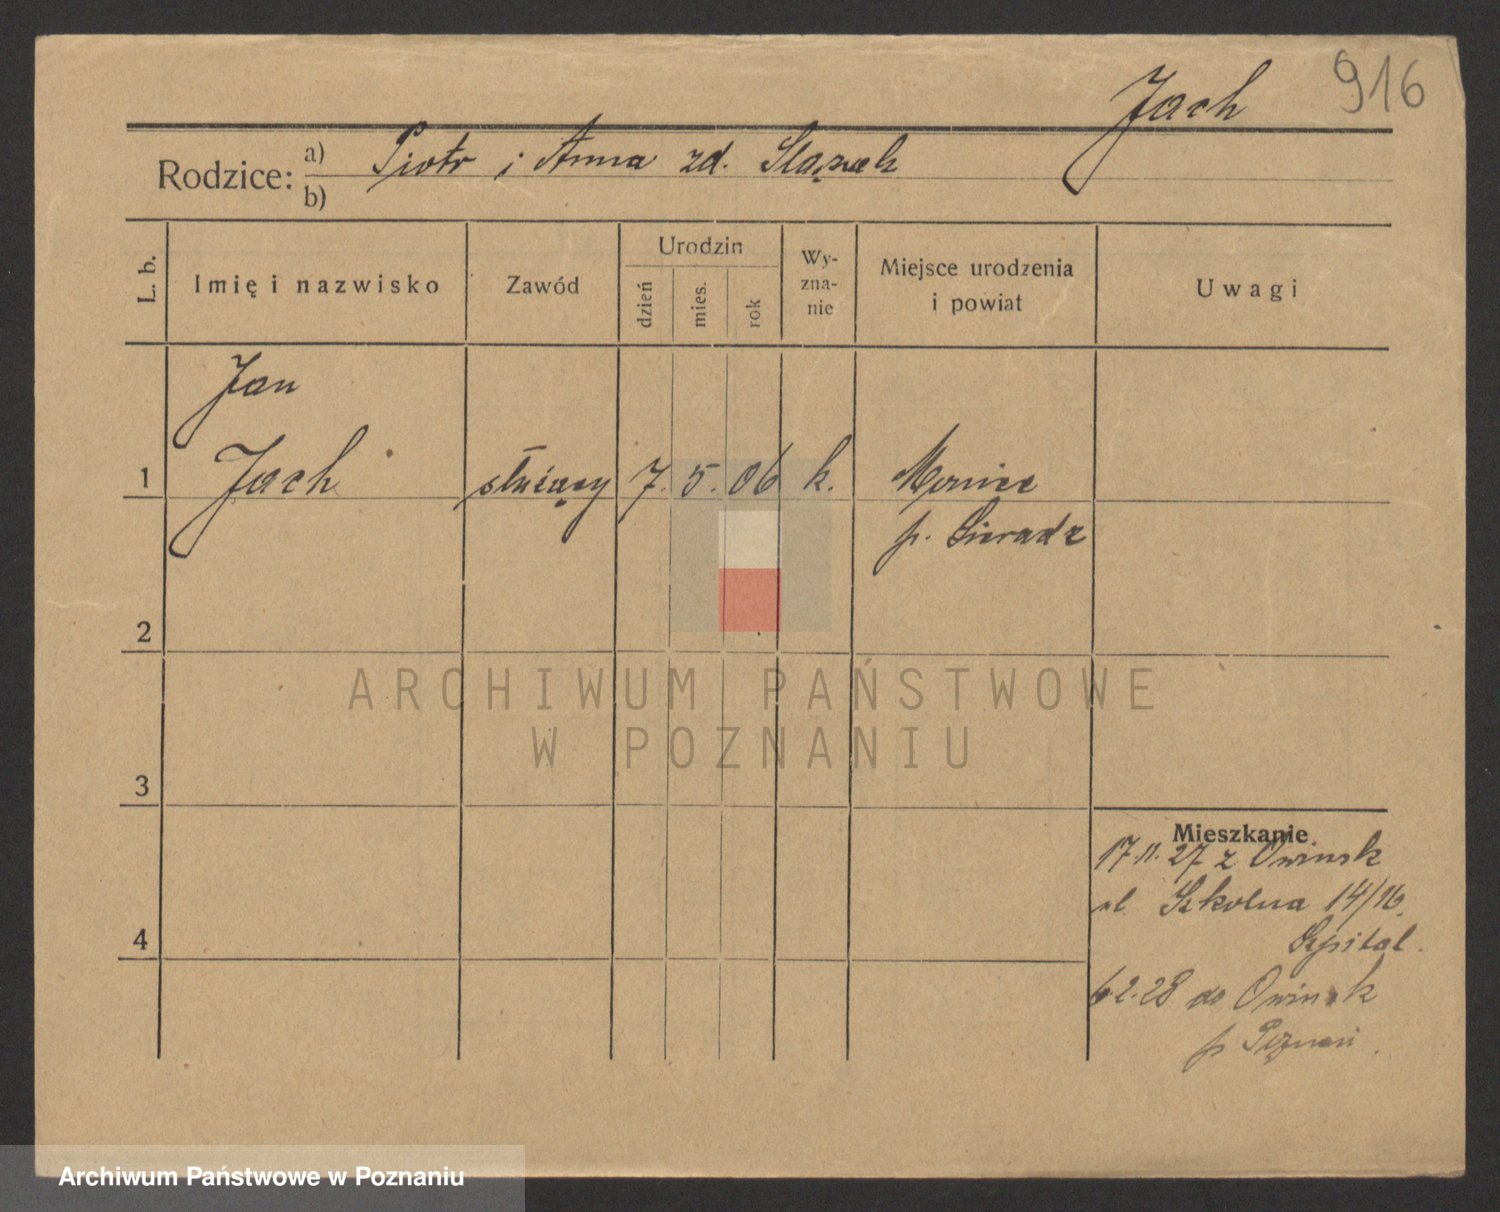 916
Jach
Rodzice: a) Piotr i Anna zd.
b)
L. b.
Imię i nazwisko
Zawód
Urodzin
dzień
mies.
rok
Wy-
zna-
nie
Miejsce urodzenia
i powiat
Uwagi
Jan
1 Jach służący 7. 5. 06 k.
p. Sieradz
2
3
4
Mieszkanie
17.11.27 z Owinsk
ul. Szkolna 14/16.
Szpital.
6.2.28 do Owinsk
p Poznań
ARCHIWUM PAŃSTWOWE
W POZNANIU
Archiwum Państwowe w Poznaniu